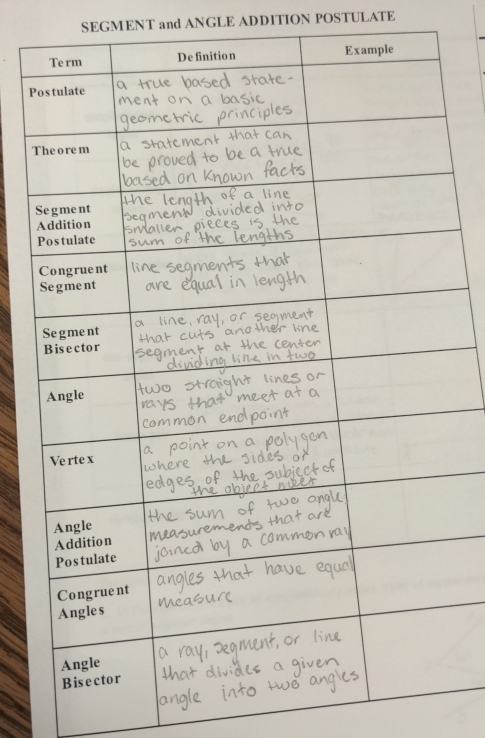 SEGMENT and ANGLE ADDITION POSTULATE
Term
Definition
Example
Postulate
a true based state-
ment on a basic
geometric principles
Theorem
a statement that can
be proved to be a true
based on known facts
Segment
Addition
Postulate
the length of a line
segment divided into
smaller pieces is the
sum of the lengths
Congruent
Segment
line segments that
are equal in length
Segment
Bisector
a line, ray, or segment
that cuts another line
segment at the center
dividing line in two
Angle
two straight lines or
rays that meet at a
common endpoint
Vertex
a point on a polygon
where the sides or
edges of the subject of
the object meet
Angle
Addition
Postulate
the sum of two angle
measurements that are
joined by a common ray
Congruent
Angles
angles that have equal
measure
Angle
Bisector
a ray, segment, or line
that divides a given
angle into two angles